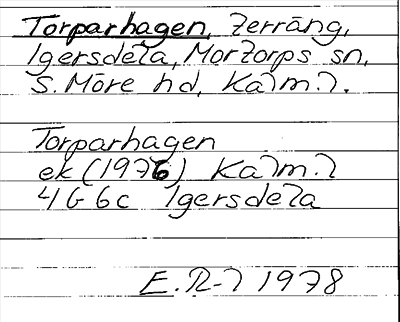 Torparhagen, terräng,
Igersdela, Mortorps sn,
S. Möre hd, Kalm. l.
Torparhagen
ek (1976) Kalm. l
4G 6c Igersdela
E. R-l 1978